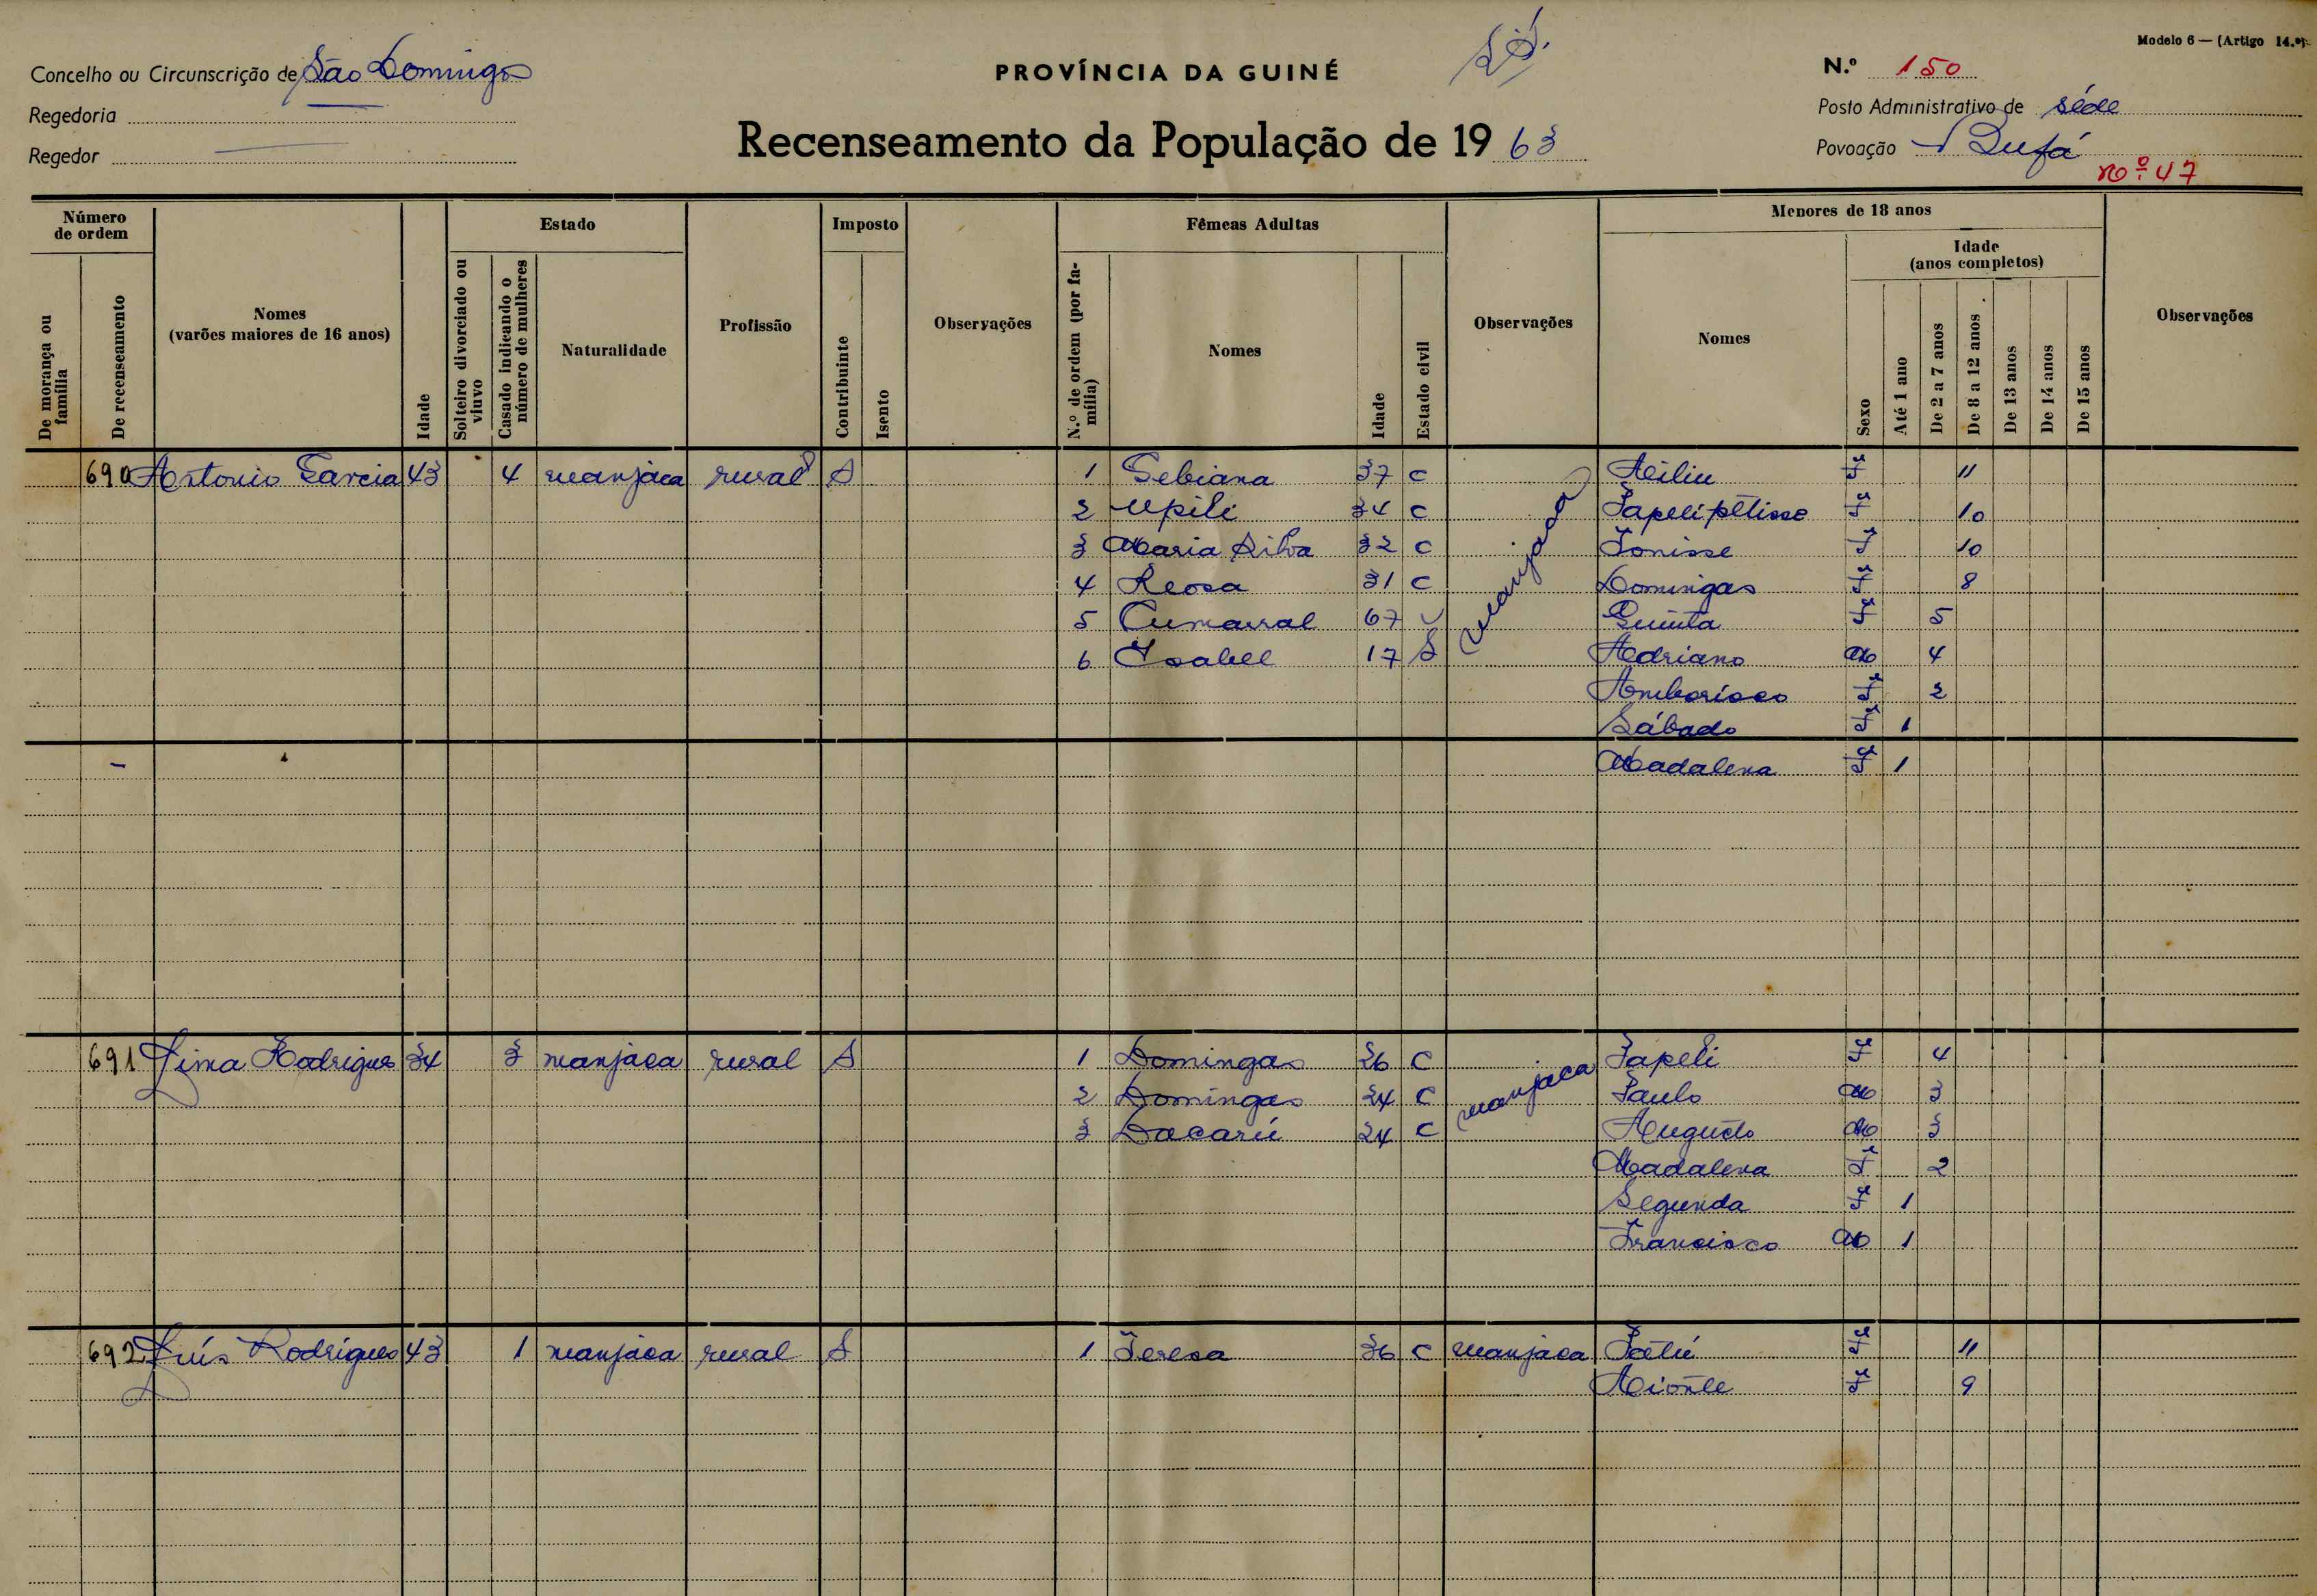 Modelo 6 — (Artigo 14.º)
Concelho ou Circunscrição de São Domingos
PROVÍNCIA DA GUINÉ
N.º 150
Regedoria
Posto Administrativo de Séde
Regedor
Recenseamento da População de 1963
Povoação Bufá
nº 47
Número de ordem
De morança ou família
De recenseamento
Nomes
(varões maiores de 16 anos)
Idade
Estado
Solteiro divorciado ou viuvo
Casado indicando o número de mulheres
Naturalidade
Profissão
Imposto
Contribuinte
Isento
Observações
Fêmeas Adultas
N.º de ordem (por família)
Nomes
Idade
Estado civil
Observações
Menores de 18 anos
Nomes
Sexo
Idade
(anos completos)
Até 1 ano
De 2 a 7 anos
De 8 a 12 anos
De 13 anos
De 14 anos
De 15 anos
Observações
690 Antonio Garcia 43 4 manjaca rural S 1 Sebiana 37 C manjaca Fe 11
2 Upili 34 C Fe 10
3 Maria Silva 32 C Tonisse Fe 10
4 31 C Domingas Fe 8
5 67 V Quinta Fe 5
6 Isabel 17 S Adriano M 4
Fe 2
Sábado Fe 1
Madalena Fe 1
691 Lima Rodrigues 34 3 manjaca rural S 1 Domingas 26 C manjaca Japeli Fe 4
2 Domingas 24 C Paulo M 3
3 Dacarú 24 C Augusto M 3
Madalena Fe 2
Segunda Fe 1
Francisco M 1
692 Luís Rodrigues 43 1 manjaca rural S 1 Teresa 36 C manjaca Fe 11
Fe 9